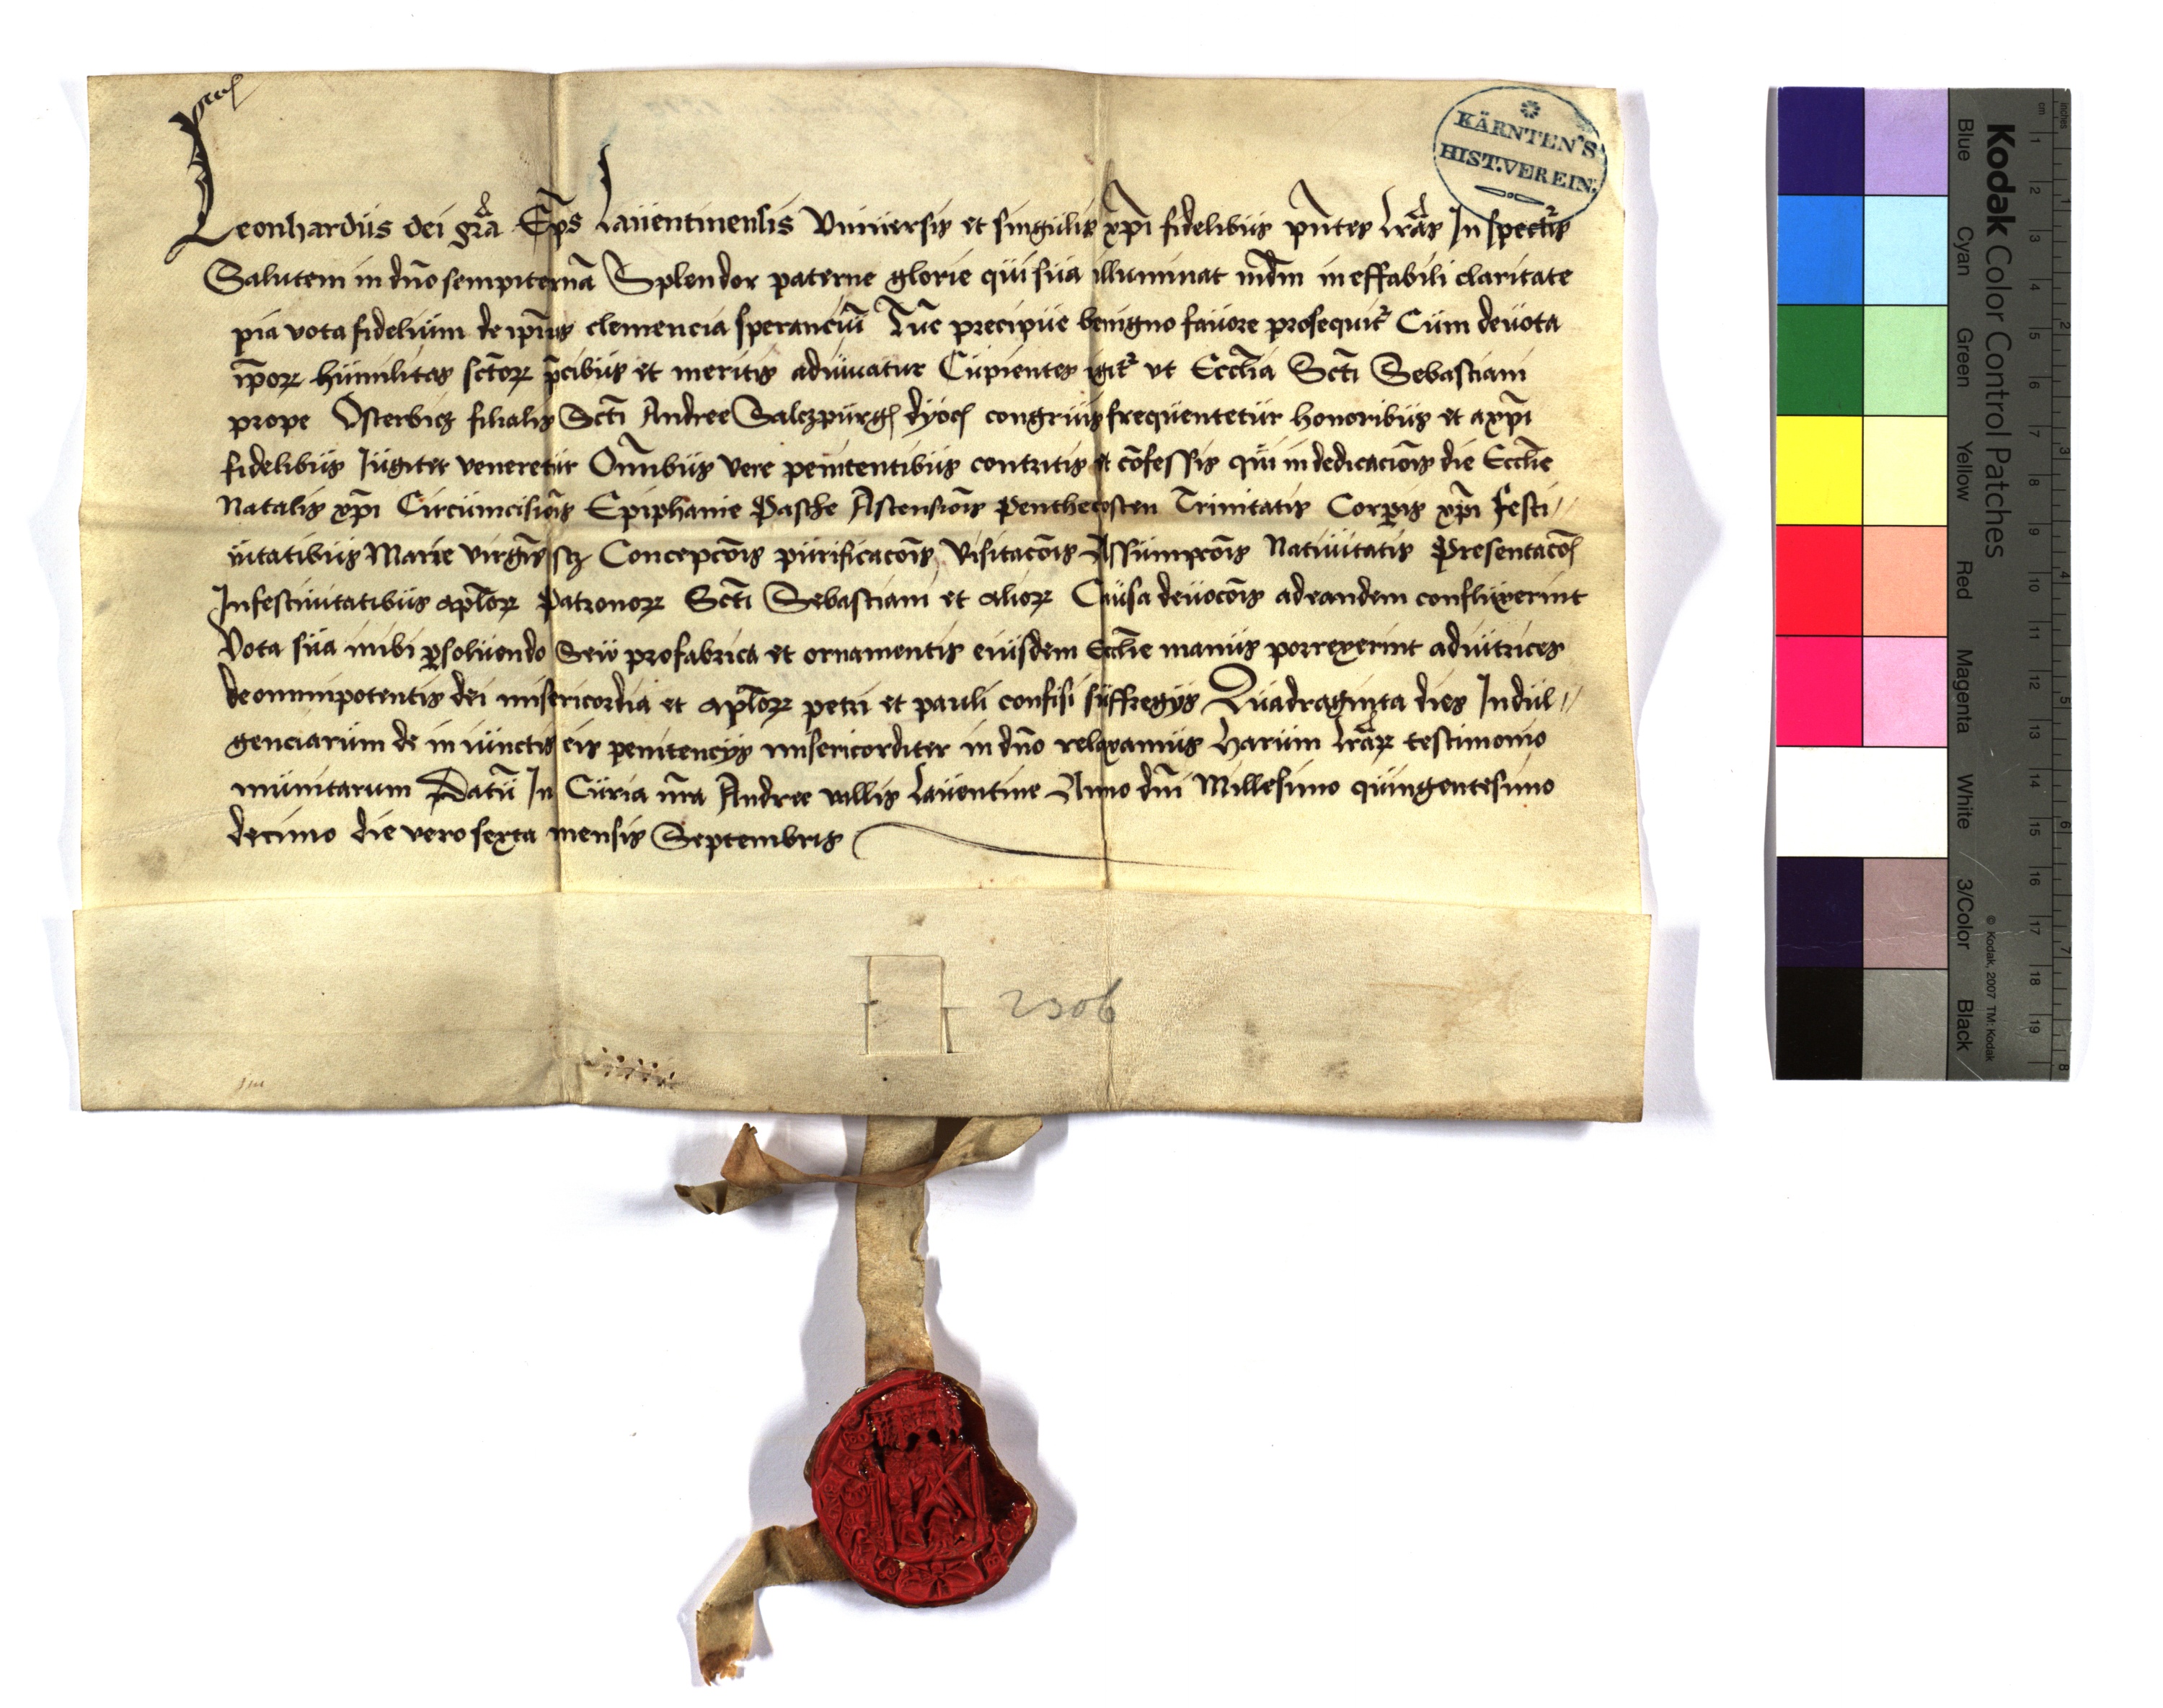 KÄRNTEN'S
HIST. VEREIN.
Leonhardus dei gr̄a Ep̄s Lauentinensis Vniuersis et singulis xp̄i fidelibus p̄ntes l̄ras Inspectur̄
Salutem in dn̄o sempiternā Splendor paterne glorie qui sua illuminat md̄m ineffabili claritate
pia vota fidelium de ip̄ius clemencia speranciū Tūc precipue benigno fauore prosequit᷑ Cum deuota
ip̄oꝝ humilitas sc̄toꝝ p̄cibus et meritis adiuuatur Cupientes igit᷑ vt Eccl̄ia Sc̄ti Sebastiani
prope Osterwicz filialis Sc̄ti Andree Salczpurḡ dyoc̄ congruis frequentetur honoribus et a xp̄i
fidelibus Iugiter veneretur Om̄ibus vere penitentibus contritis et cōfessis qui in dedicaciōis die Eccl̄ie
Natalis xp̄i Circumcisiōis Epiphanie Pasche Ascensiōis Penthecosten Trinitatis Corꝑis xp̄i Festi//
uitatibus Marie virgīs scꝫ Concepcōis purificacōis Visitacōis Assumpcōis Natiuitatis Presentacōs
In festiuitatibus apl̄oꝝ Patronoꝝ Sc̄ti Sebastiani et alioꝝ Causa deuocōis ad eandem confluxerint
Vota sua inibi ꝑsoluendo Seu pro fabrica et ornamentis eiusdem Eccl̄ie manus porrexerint adiutrices
de omnipotentis dei misericordia et apl̄oꝝ petri et pauli confisi suffragijs Quadraginta dies Indul//
genciarum de iniunctis eis penitencijs misericorditer in dn̄o relaxamus Harum l̄raꝝ testimonio
munitarum Datū In Curia nr̄a Andree vallis Lauentine Anno dn̄i Millesimo quingentesimo
decimo die vero sexta mensis Septembris
2306
Kodak Color Control Patches
Blue Cyan Green Yellow Red Magenta White 3/Color Black
© Kodak, 2007 TM: Kodak
cm 1 2 3 4 5 6 7 8 9 10 11 12 13 14 15 16 17 18 19
inches 1 2 3 4 5 6 7 8